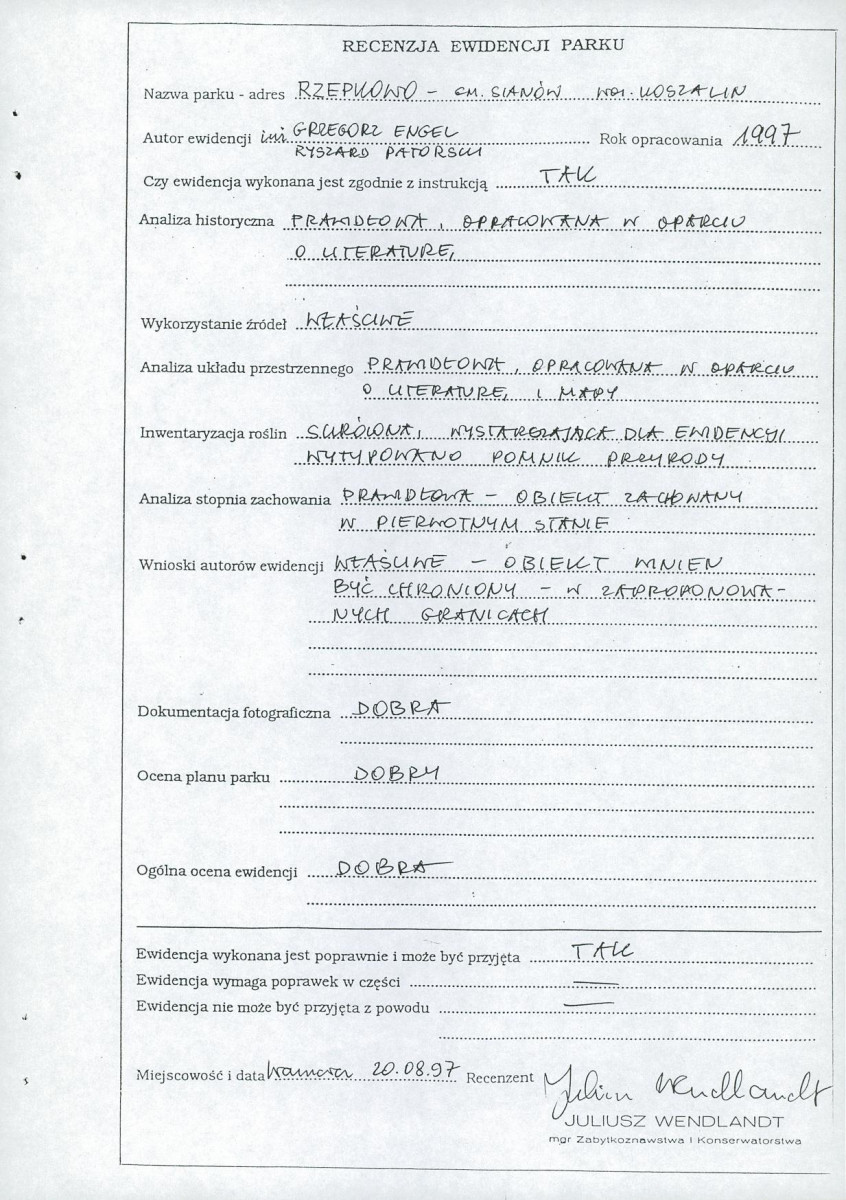 RECENZJA EWIDENCJI PARKU
Nazwa parku - adres RZEPKOWO - GM. SIANÓW WOJ. KOSZALIN
Autor ewidencji inż. GRZEGORZ ENGEL Rok opracowania 1997
RYSZARD PATORSKI
Czy ewidencja wykonana jest zgodnie z instrukcją TAK
Analiza historyczna PRAWIDŁOWA, OPRACOWANA W OPARCIU
O LITERATURĘ,
Wykorzystanie źródeł WŁAŚCIWE
Analiza układu przestrzennego PRAWIDŁOWA, OPRACOWANA W OPARCIU
O LITERATURĘ, I MAPY
Inwentaryzacja roślin SKRÓTOWA, WYSTARCZAJĄCA DLA EWIDENCJI
WYTYPOWANO POMNIK PRZYRODY
Analiza stopnia zachowania PRAWIDŁOWA - OBIEKT ZACHOWANY
W PIERWOTNYM STANIE
Wnioski autorów ewidencji WŁAŚCIWE - OBIEKT WINIEN
BYĆ CHRONIONY - W ZAPROPONOWA-
NYCH GRANICACH
Dokumentacja fotograficzna DOBRA
Ocena planu parku DOBRY
Ogólna ocena ewidencji DOBRA
Ewidencja wykonana jest poprawnie i może być przyjęta TAK
Ewidencja wymaga poprawek w części —
Ewidencja nie może być przyjęta z powodu —
Miejscowość i data 20.08.97 Recenzent Juliusz Wendlandt
JULIUSZ WENDLANDT
mgr Zabytkoznawstwa i Konserwatorstwa